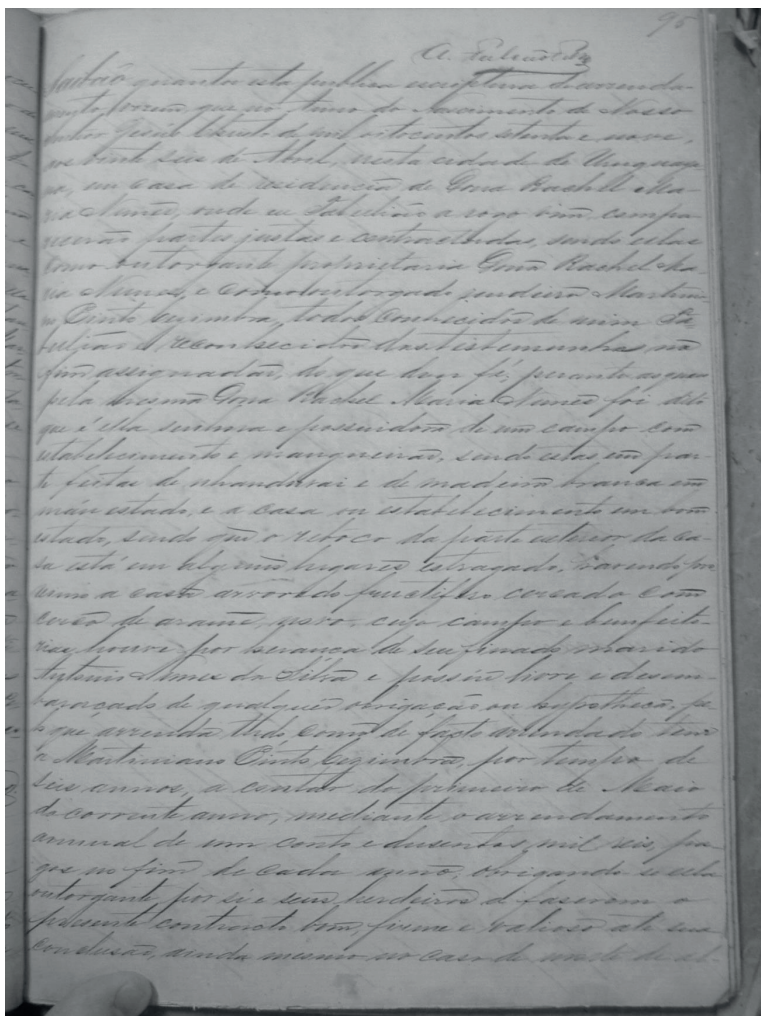 95
Saibão quantos esta publica escriptura de arrenda-
mento virem, que no anno do Nascimento de Nosso
Senhor Jesus Christo de mil oitocentos setenta e nove,
aos vinte seis de Abril, nesta cidade de Uruguaya-
na, em casa de residencia de Dona Rachel Ma-
ria Nunes, onde eu Tabellião a rogo vim, compa-
recerão partes justas e contractadas, sendo ellas
como outorgante proprietaria Dona Rachel Ma-
ria Nunes, e como outorgado rendeiro Martinia-
no Pinto Cezimbra, todos conhecidos de mim Ta-
bellião e reconhecidos das testemunhas, no
fim assignadas, do que dou fé; perante as quaes
pela mesma Dona Rachel Maria Nunes foi dito
que é ella senhora e possuidora de um campo com
estabelecimento e mangueiras, sendo estas em par-
te feitas de nhanduvai e de madeira branca em
máu estado, e a casa ou estabelecimento em bom
estado, sendo que o reboco da parte exterior da ca-
sa está em alguns lugares estragado, havendo pro-
ximo a casa arvoredo fructifero cercado com
cerca de arame, cujo campo e bemfeito-
rias houve por herança de seu finado marido
Antonio Nunes da Silva e possúe livre e desem-
baraçado de qualquer obrigação ou hypotheca, pe-
lo que arrenda tudo como de facto arrendado tem
a Martiniano Pinto Cezimbra, por tempo de
seis annos, a contar do primeiro de Maio
do corrente anno, mediante o arrendamento
annual de um conto e dusentos mil reis, pa-
gos no fim de cada anno, obrigando-se ella
outorgante por si e seus herdeiros a faserem o
presente contracto bom, firme e valioso até sua
conclusão, ainda mesmo no caso de morte de al-